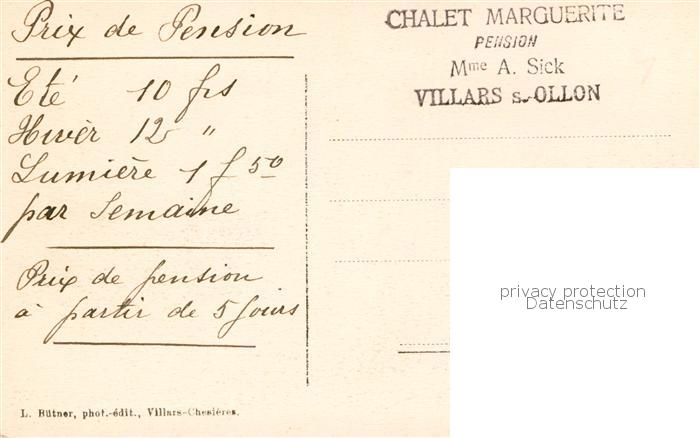 Prix de Pension
Eté 10 frs
Hivèr 12 "
Lumière 1 f 50
par Semaine
Prix de pension
à partir de 5 Jours
L. Bütner, phot.-édit., Villars-Chesières.
CHALET MARGUERITE
PENSION
Mme A. Sick
VILLARS s-OLLON
privacy protection
Datenschutz